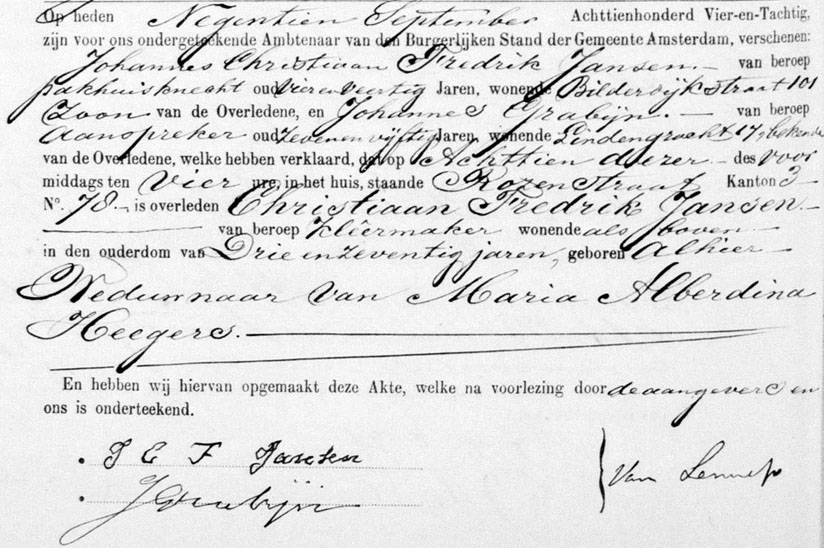 Op heden Negentien September Achttienhonderd Vier-en-Tachtig,
zijn voor ons ondergeteekende Ambtenaar van den Burgerlijken Stand der Gemeente Amsterdam, verschenen:
Johannes Christiaan Fredrik Jansen.– van beroep
pakhuisknecht oud vierenveertig Jaren, wonende Bilderdijkstraat 101
Zoon van de Overledene, en Johannes Grabijn.– van beroep
Aanspreker oud Zevenenvijftig Jaren, wonende Lindengracht 17, bekende
van de Overledene, welke hebben verklaard, dat op Achttien dezer – des voor
middags ten vier ure, in het huis, staande Rozenstraat Kanton 3
N°. 78.– is overleden Christiaan Fredrik Jansen.–
van beroep kleêrmaker wonende als boven –
in den ouderdom van Drie en zeventig jaren, geboren alhier –
Weduwnaar van Maria Alberdina
Heegers.
En hebben wij hiervan opgemaakt deze Akte, welke na voorlezing door de aangevers en
ons is onderteekend.
J C F Jansen
J Grabijn
Van Lennep